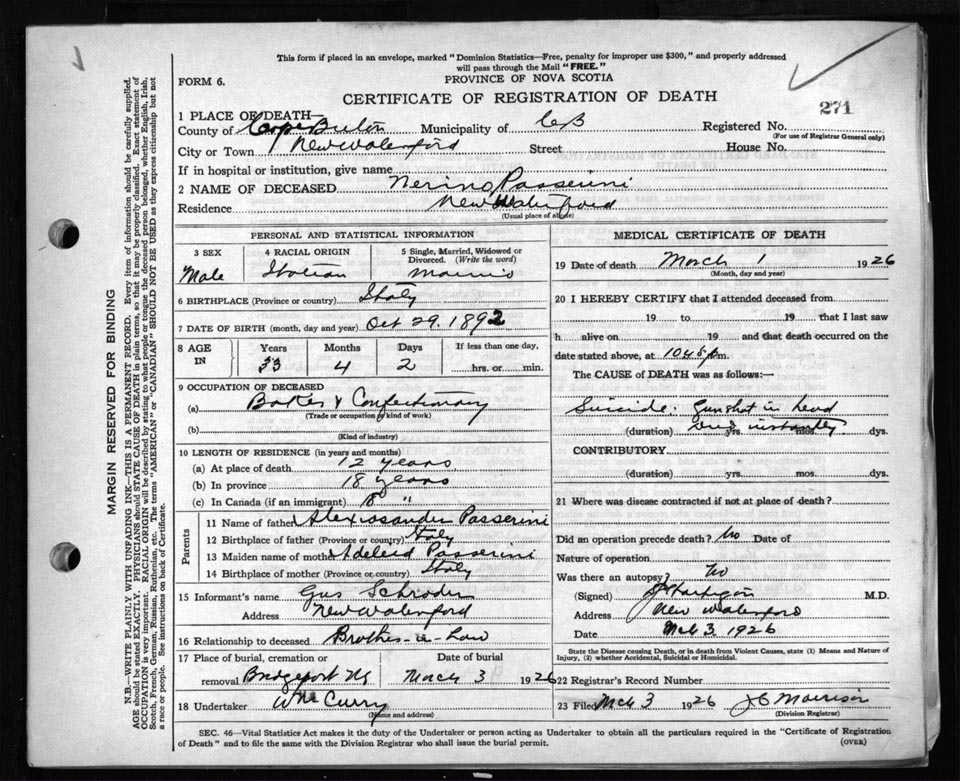 This form if placed in an envelope, marked "Dominion Statistics—Free, penalty for improper use $300," and properly addressed
will pass through the Mail "FREE."
FORM 6.
PROVINCE OF NOVA SCOTIA
CERTIFICATE OF REGISTRATION OF DEATH
271
1 PLACE OF DEATH—
County of Cape Breton Municipality of CB Registered No.
(For use of Registrar General only)
City or Town New Waterford Street House No.
If in hospital or institution, give name
2 NAME OF DECEASED Nerino Passerini
Residence New Waterford
(Usual place of abode)
PERSONAL AND STATISTICAL INFORMATION
3 SEX
Male
4 RACIAL ORIGIN
Italian
5 Single, Married, Widowed or
Divorced. (Write the word)
6 BIRTHPLACE (Province or country) Italy
7 DATE OF BIRTH (month, day and year) Oct 29. 1892
8 AGE
IN
Years Months Days If less than one day,
33 4 2 hrs. or min.
9 OCCUPATION OF DECEASED
(a) Baker & Confectionary
(Trade or occupation or kind of work)
(b)
(Kind of industry)
10 LENGTH OF RESIDENCE (in years and months)
(a) At place of death 12 years
(b) In province 18 years
(c) In Canada (if an immigrant) 18 "
Parents
11 Name of father Passerini
12 Birthplace of father (Province or country) Italy
13 Maiden name of mother Passerini
14 Birthplace of mother (Province or country) Italy
15 Informant's name Gus Schroder
Address New Waterford
16 Relationship to deceased Brother-in-law
17 Place of burial, cremation or
removal Bridgeport NS
Date of burial
March 3 1926
18 Undertaker Wm Curry
(Name and address)
MEDICAL CERTIFICATE OF DEATH
19 Date of death March 1 1926
(Month, day and year)
20 I HEREBY CERTIFY that I attended deceased from
19 to 19 that I last saw
h alive on 19 and that death occurred on the
date stated above, at 1045 p.m.
The CAUSE of DEATH was as follows:—
Suicide. Gunshot in head
died instantly
(duration) yrs. mos. dys.
CONTRIBUTORY
(duration) yrs. mos. dys.
21 Where was disease contracted if not at place of death?
Did an operation precede death? No Date of
Nature of operation
Was there an autopsy? No
(Signed) M.D.
Address New Waterford
Date Mch 3. 1926
State the Disease causing Death, or in death from Violent Causes, state (1) Means and Nature of
Injury, (2) whether Accidental, Suicidal or Homicidal.
22 Registrar's Record Number
23 Filed Mch 3 1926 J C Morrison
(Division Registrar)
SEC. 46—Vital Statistics Act makes it the duty of the Undertaker or person acting as Undertaker to obtain all the particulars required in the "Certificate of Registration
of Death" and to file the same with the Division Registrar who shall issue the burial permit.
(OVER)
MARGIN RESERVED FOR BINDING
N.B.—WRITE PLAINLY WITH UNFADING INK—THIS IS A PERMANENT RECORD. Every item of information should be carefully supplied.
AGE should be stated EXACTLY. PHYSICIANS should STATE CAUSE OF DEATH in plain terms, so that it may be properly classified. Exact statement of
OCCUPATION is very important. RACIAL ORIGIN will be described by stating to what people or tongue the deceased person belonged, whether English, Irish,
Scotch, French, German, Russian, Ruthenian, etc. The terms "AMERICAN" or "CANADIAN" SHOULD NOT BE USED as they express citizenship but not
a race or people. See instructions on back of Certificate.